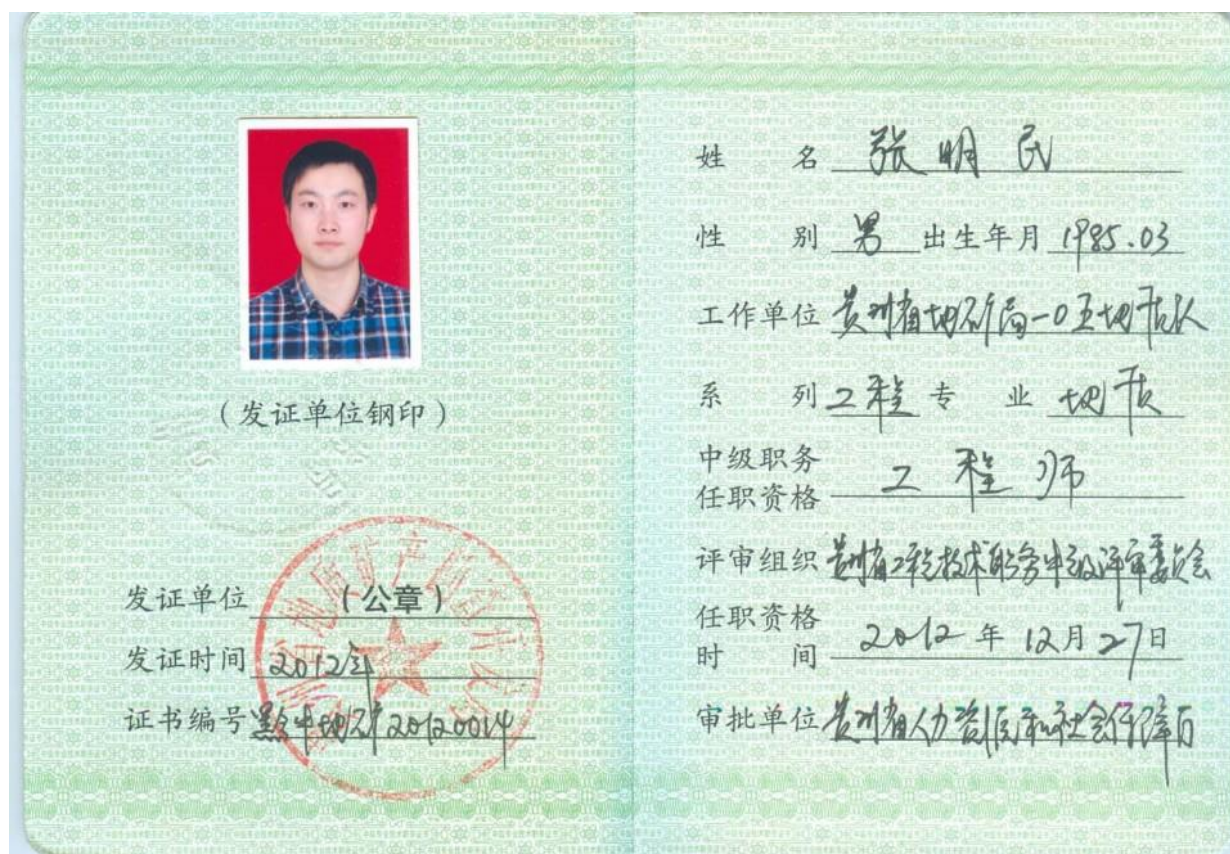 (发证单位钢印)
发证单位 (公章)
发证时间 2012年
证书编号 黔中地矿20120014
贵州省地质矿产勘查开发局
姓名 张明民
性别 男 出生年月 1985.03
工作单位 贵州省地矿局一0五地质队
系列 工程 专业 地质
中级职务
任职资格 工程师
评审组织 贵州省工程技术职务中级评审委员会
任职资格
时间 2012年12月27日
审批单位 贵州省人力资源和社会保障厅